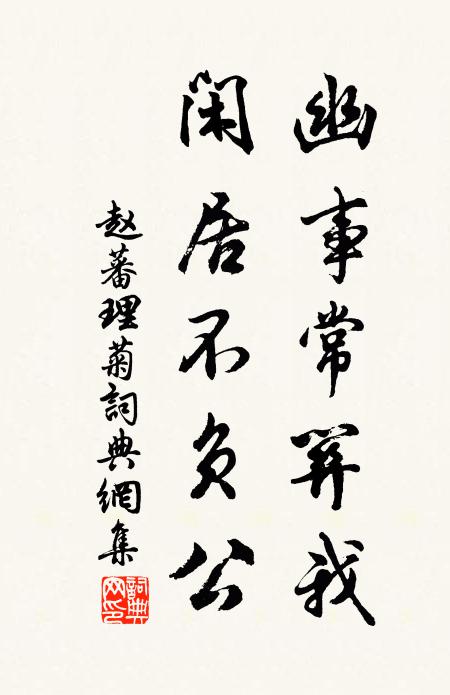 幽事常我
閑居不负公
赵蕃理菊詞典網集
詞典网印